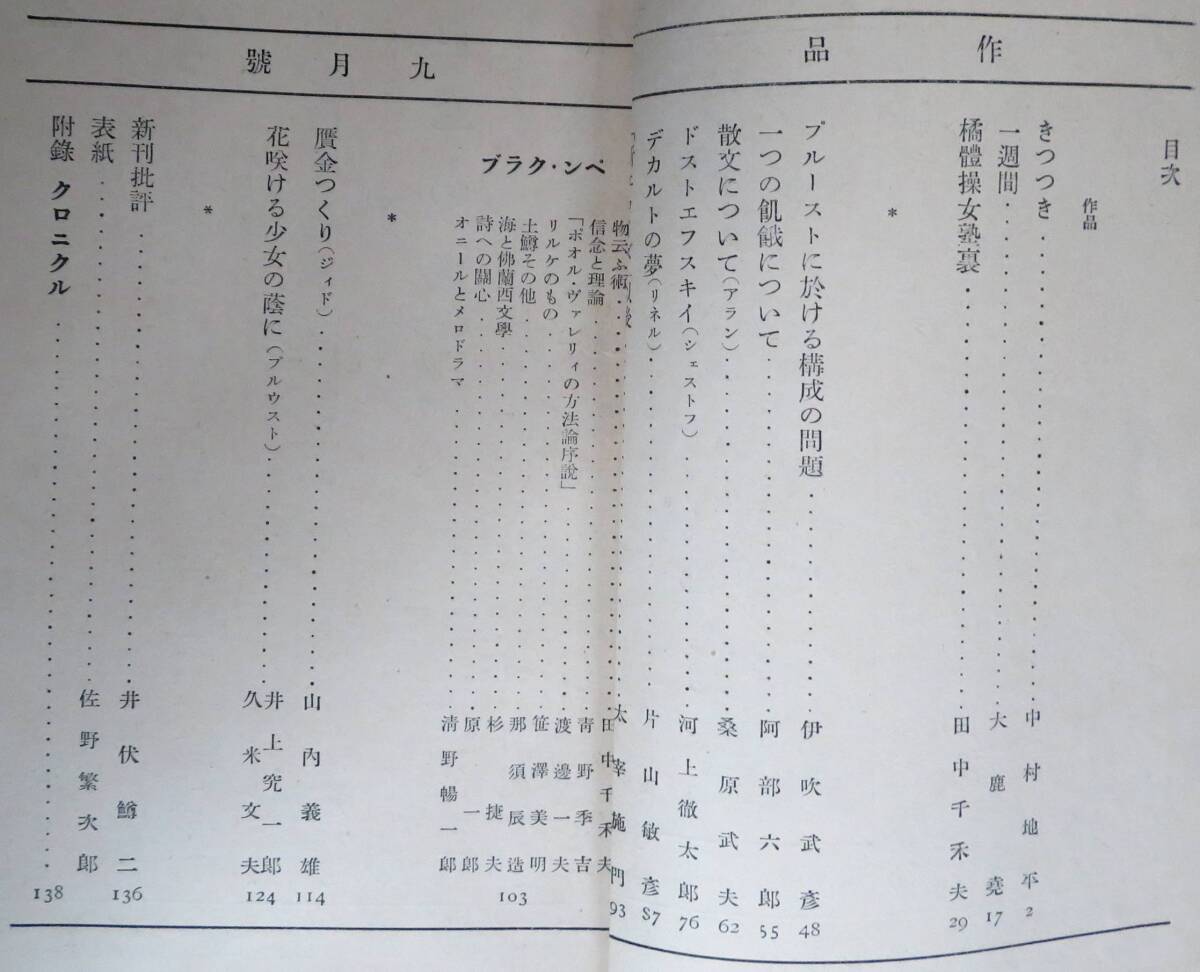 作品
九月號
目次
作品
きつつき・・・・・・・・中村地平 2
一週間・・・・・・・・大鹿堯 17
橘體操女塾裏・・・・・・・・田中千禾夫 29
*
プルーストに於ける構成の問題・・・・・・・・伊吹武彥 48
一つの飢餓について・・・・・・・・阿部六郎 55
散文について(アラン)・・・・・・・・桑原武夫 62
ドストエフスキイ(シェストフ)・・・・・・・・河上徹太郎 76
デカルトの夢(リネル)・・・・・・・・片山敏彥 87
太宰施門 93
ペン・クラブ
物云ふ術・・・・・・・・田中千禾夫
信念と理論・・・・・・・・靑野季吉
「ポオル・ヴァレリィの方法論序說」・・・・・・・・渡邊一夫
リルケのもの・・・・・・・・笹澤美明
土鱒その他・・・・・・・・那須辰造
海と佛蘭西文學・・・・・・・・杉捷夫
詩への關心・・・・・・・・原一郎
オニールとメロドラマ・・・・・・・・淸野暢一郎
103
*
贋金つくり(ジィド)・・・・・・・・山內義雄 114
花咲ける少女の蔭に(プルウスト)・・・・・・・・井上究一郎
久米文夫 124
*
新刊批評・・・・・・・・井伏鱒二 136
表紙・・・・・・・・佐野繁次郎
附錄 クロニクル・・・・・・・・138